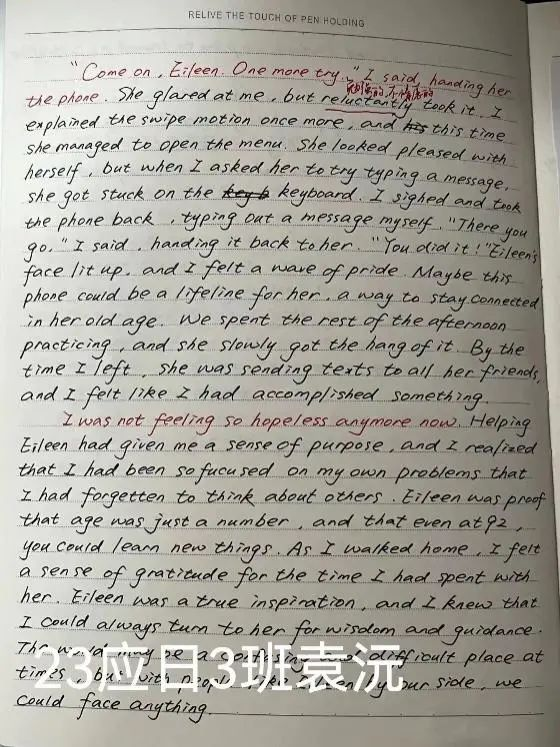 RELIVE THE TOUCH OF PEN HOLDING
"Come on, Eileen. One more try." I said, handing her
the phone. She glared at me, but reluctantly took it. I
explained the swipe motion once more, and this time
she managed to open the menu. She looked pleased with
herself, but when I asked her to try typing a message,
she got stuck on the keyboard. I sighed and took
the phone back, typing out a message myself. "There you
go." I said, handing it back to her. "You did it!" Eileen's
face lit up, and I felt a wave of pride. Maybe this
phone could be a lifeline for her, a way to stay connected
in her old age. We spent the rest of the afternoon
practicing, and she slowly got the hang of it. By the
time I left, she was sending texts to all her friends,
and I felt like I had accomplished something.
I was not feeling so hopeless anymore now. Helping
Eileen had given me a sense of purpose, and I realized
that I had been so fucused on my own problems that
I had forgetten to think about others. Eileen was proof
that age was just a number, and that even at 92,
you could learn new things. As I walked home, I felt
a sense of gratitude for the time I had spent with
her. Eileen was a true inspiration, and I knew that
I could always turn to her for wisdom and guidance.
The world may be a confusing and difficult place at
times, but with people like Eileen by our side, we
could face anything.
23应日3班袁沅